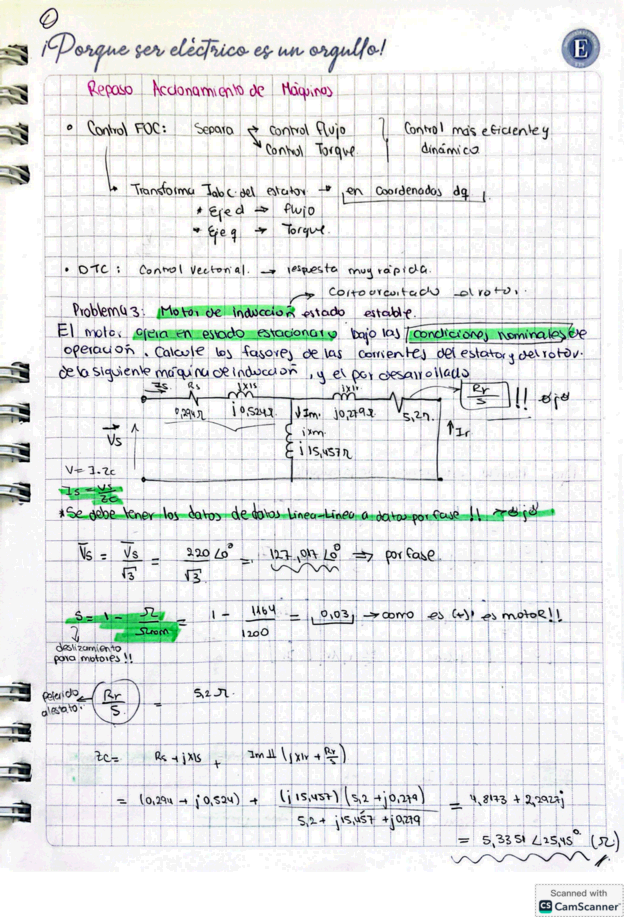 1
¡Porque ser eléctrico es un orgullo!
E
Repaso Accionamiento de Máquinas
• Control FOC: Separa → control flujo
↘ Control Torque.
Control más eficiente y dinámico
↳ Transforma Iabc del estator → en coordenadas dq
* Eje d → flujo
* Eje q → Torque.
• DTC: Control Vectorial. → respuesta muy rápida.
→ cortocircuitado el rotor.
Problema 3: Motor de inducción estado estable.
El motor opera en estado estacionario bajo las condiciones nominales de
operación. Calcule los fasores de las corrientes del estator y del rotor.
de la siguiente máquina de inducción, y el par desarrollado
Is Rs jxls jxlr Rr/s !! ojo
0,294Ω j0,524Ω ↓Im. j0,279Ω 5,2Ω. ↑Ir
Vs jxm
j15,457Ω
V = I.Zc
Is = Vs/Zc
*Se debe tener los datos de datos Linea-Linea a datos por fase !! → ojo
Vs = Vs/√3 = 220∠0°/√3 = 127,017∠0° ⇒ por fase.
S = 1 - Ω/Ωnom = 1 - 1164/1200 = 0,03 → como es (+) es motor!!
deslizamiento
para motores !!
Referido
al estator. ← Rr/s = 5,2Ω.
Zc = Rs + jXls + Im || (jxlr + Rr/s)
= (0,294 + j0,524) + (j15,457)(5,2 + j0,279) / 5,2 + j15,457 + j0,279 = 4,8173 + 2,2927j
= 5,3351∠25,45° (Ω)
Scanned with
CS CamScanner